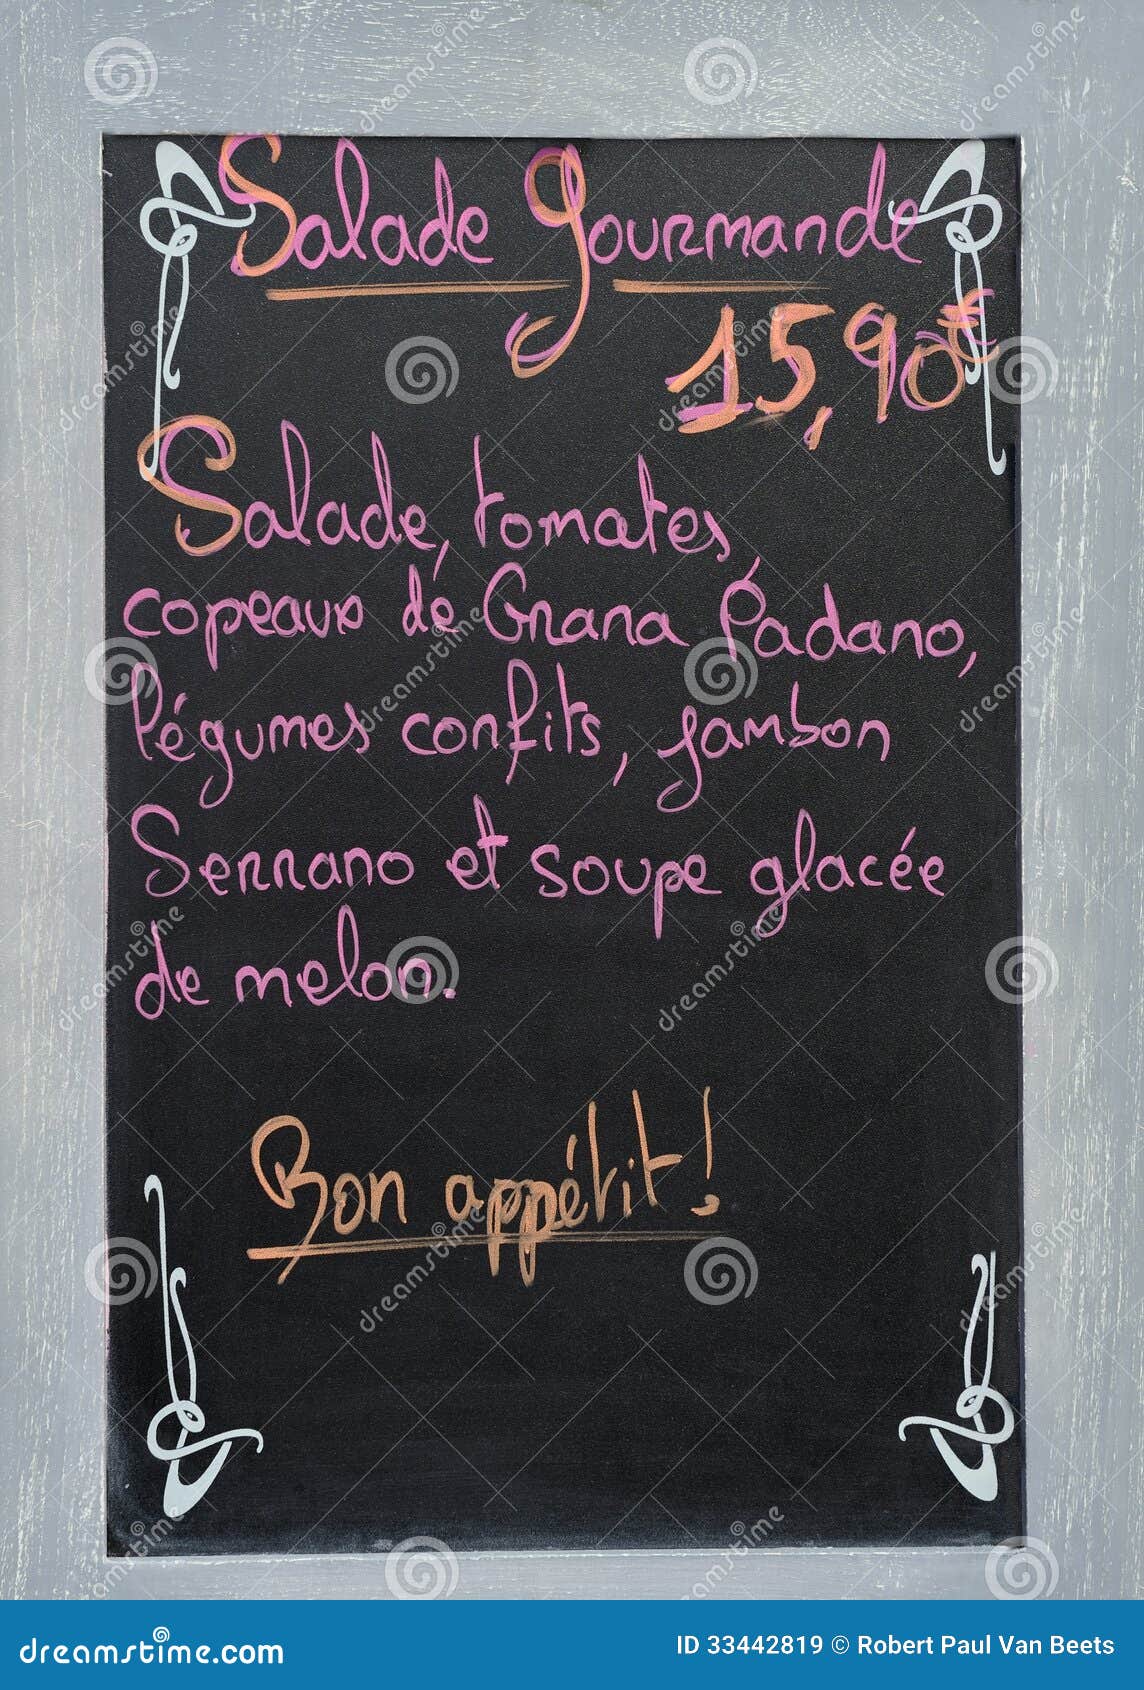 Salade gourmande
15,90€
Salade, tomates,
copeaux de Grana Padano,
légumes confits, jambon
Serrano et soupe glacée
de melon.
Bon appétit!
dreamstime.com
ID 33442819 © Robert Paul Van Beets